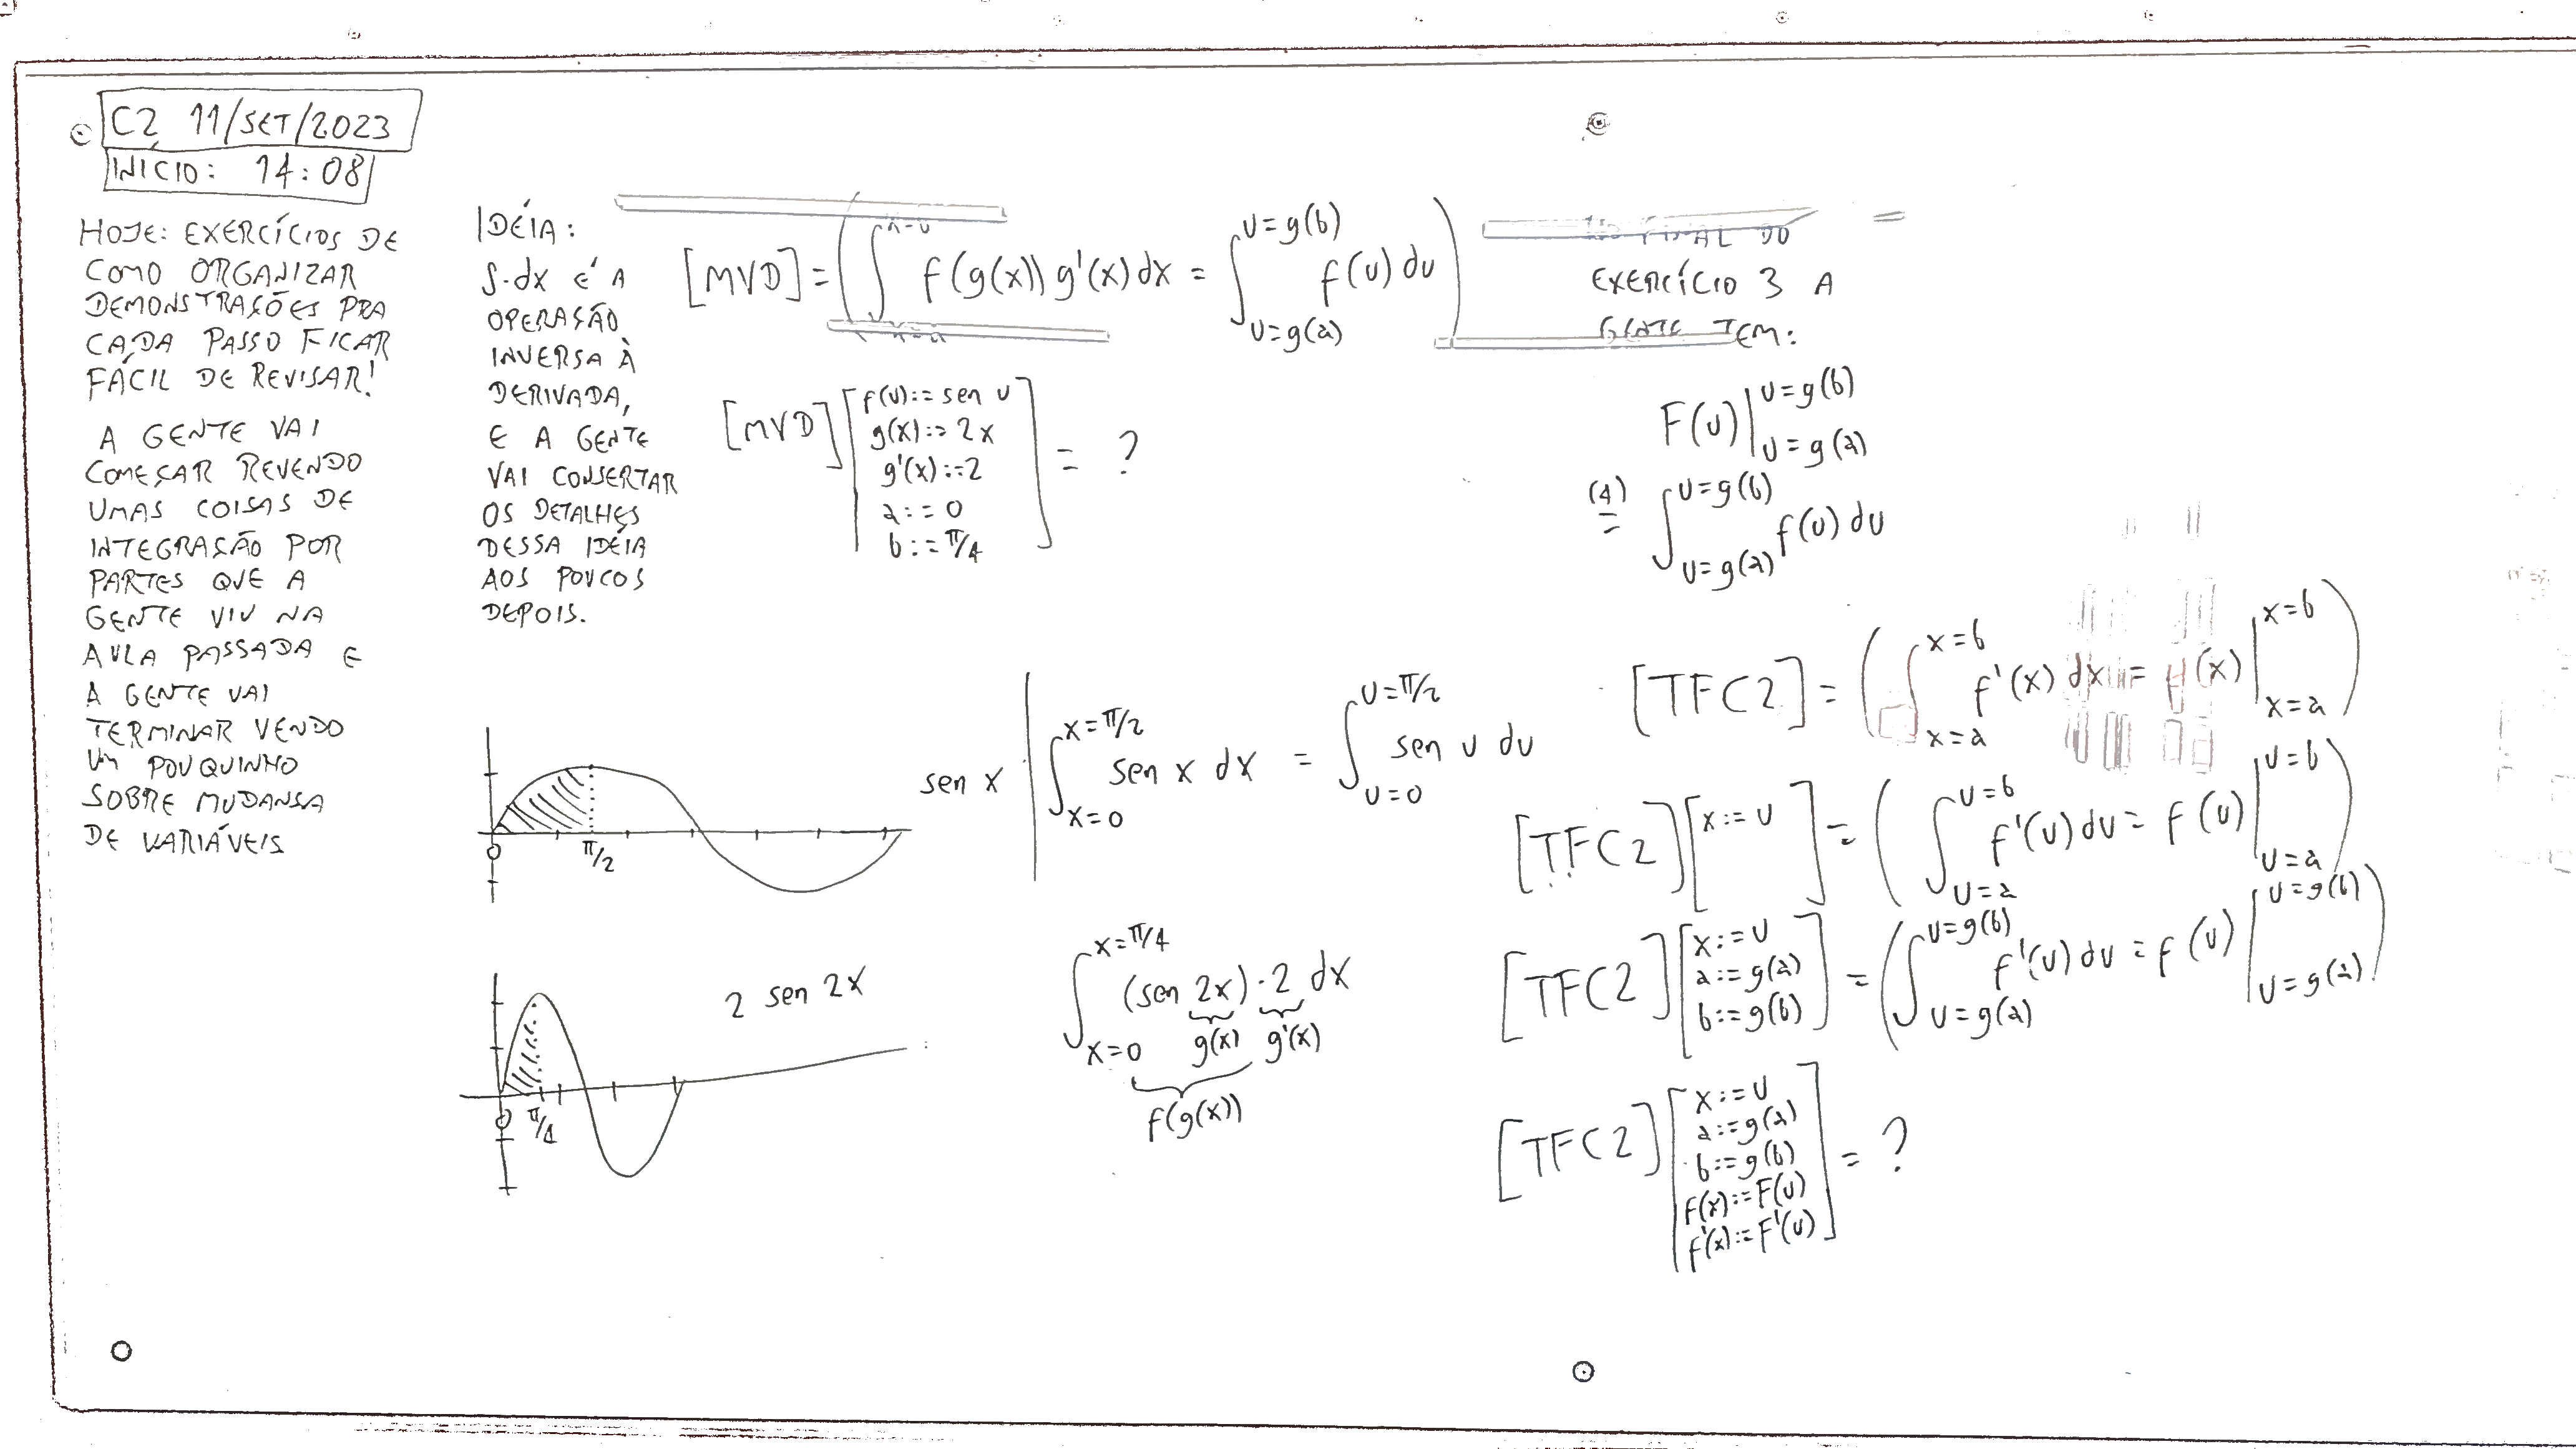 C2 11/SET/2023
INÍCIO: 14:08
HOJE: EXERCÍCIOS DE
COMO ORGANIZAR
DEMONSTRAÇÕES PRA
CADA PASSO FICAR
FÁCIL DE REVISAR!
A GENTE VAI
COMEÇAR REVENDO
UMAS COISAS DE
INTEGRAÇÃO POR
PARTES QUE A
GENTE VIU NA
AULA PASSADA E
A GENTE VAI
TERMINAR VENDO
UM POUQUINHO
SOBRE MUDANSA
DE VARIÁVEIS
IDÉIA:
∫·dx É A
OPERAÇÃO
INVERSA À
DERIVADA,
E A GENTE
VAI CONSERTAR
OS DETALHES
DESSA IDÉIA
AOS POUCOS
DEPOIS.
[MVD] = ( ∫_{x=a}^{x=b} f(g(x)) g'(x) dx = ∫_{u=g(a)}^{u=g(b)} f(u) du )
[MVD] [ f(u):= sen u
g(x):= 2x
g'(x):=2
a:=0
b:=π/4 ] = ?
0 π/2
sen x
∫_{x=0}^{x=π/2} sen x dx = ∫_{u=0}^{u=π/2} sen u du
0 π/4
2 sen 2x
∫_{x=0}^{x=π/4} (sen 2x)·2 dx
g(x) g'(x)
f(g(x))
FINAL DO
EXERCÍCIO 3 A
GENTE TEM:
F(u) |_{u=g(a)}^{u=g(b)}
(4)
= ∫_{u=g(a)}^{u=g(b)} f(u) du
[TFC2] = ( ∫_{x=a}^{x=b} f'(x) dx = f(x) |_{x=a}^{x=b} )
[TFC2] [ x:=u ] = ( ∫_{u=a}^{u=b} f'(u) du = f(u) |_{u=a}^{u=b} )
[TFC2] [ x:=u
a:=g(a)
b:=g(b) ] = ( ∫_{u=g(a)}^{u=g(b)} f'(u) du = f(u) |_{u=g(a)}^{u=g(b)} )
[TFC2] [ x:=u
a:=g(a)
b:=g(b)
f(x):=F(u)
f'(x):=F'(u) ] = ?